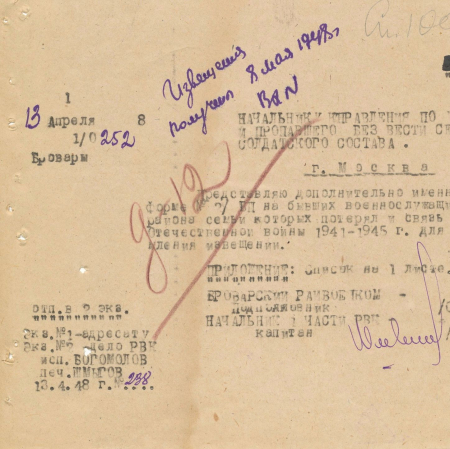 Извещения
получены 8 мая 1948г.
1
13 Апреля 8
1/0252
Бровары
НАЧАЛЬНИКУ УПРАВЛЕНИЯ ПО
И ПРОПАВШЕГО БЕЗ ВЕСТИ
СОЛДАТСКОГО СОСТАВА.
г. Москва
Представляю дополнительно именн
форме 2/БД на бывших военнослужащи
района семьи которых потеряли связь
Отечественной войны 1941-1945 г. для
мления извещений.
ПРИЛОЖЕНИЕ: Список на 1 листе.
БРОВАРСКИЙ РАЙВОЕНКОМ -
подполковник
НАЧАЛЬНИК 1 ЧАСТИ РВК
капитан
отп. в 2 экз.
Экз.№1-адресату
Экз.№2-дело РВК
исп. БОГОМОЛОВ
печ. ШМЫГОВ
13.4.48 г.№238